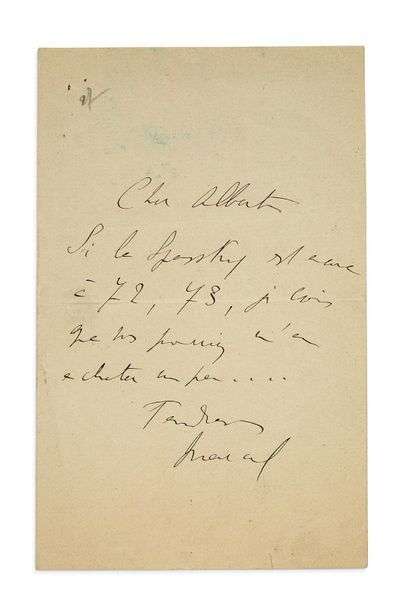 Cher Albert
Si le Spassky est encore
à 72, 73, je crois
que vous pourriez m'en
acheter un peu....
Tendresses
Marcel